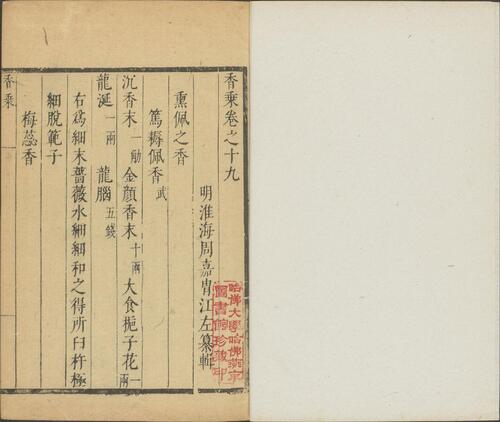 香乗卷之十九
明淮海周嘉胄江左纂輯
熏佩之香
篤耨佩香武
沉香末一觔 金顏香末十兩 大食梔子花一兩
龍涎一兩 龍腦五錢
右爲細末薔薇水細細和之得所臼杵極
細脫範子
梅蕊香
香乗
哈佛大學哈佛燕京
圖書館珍藏印